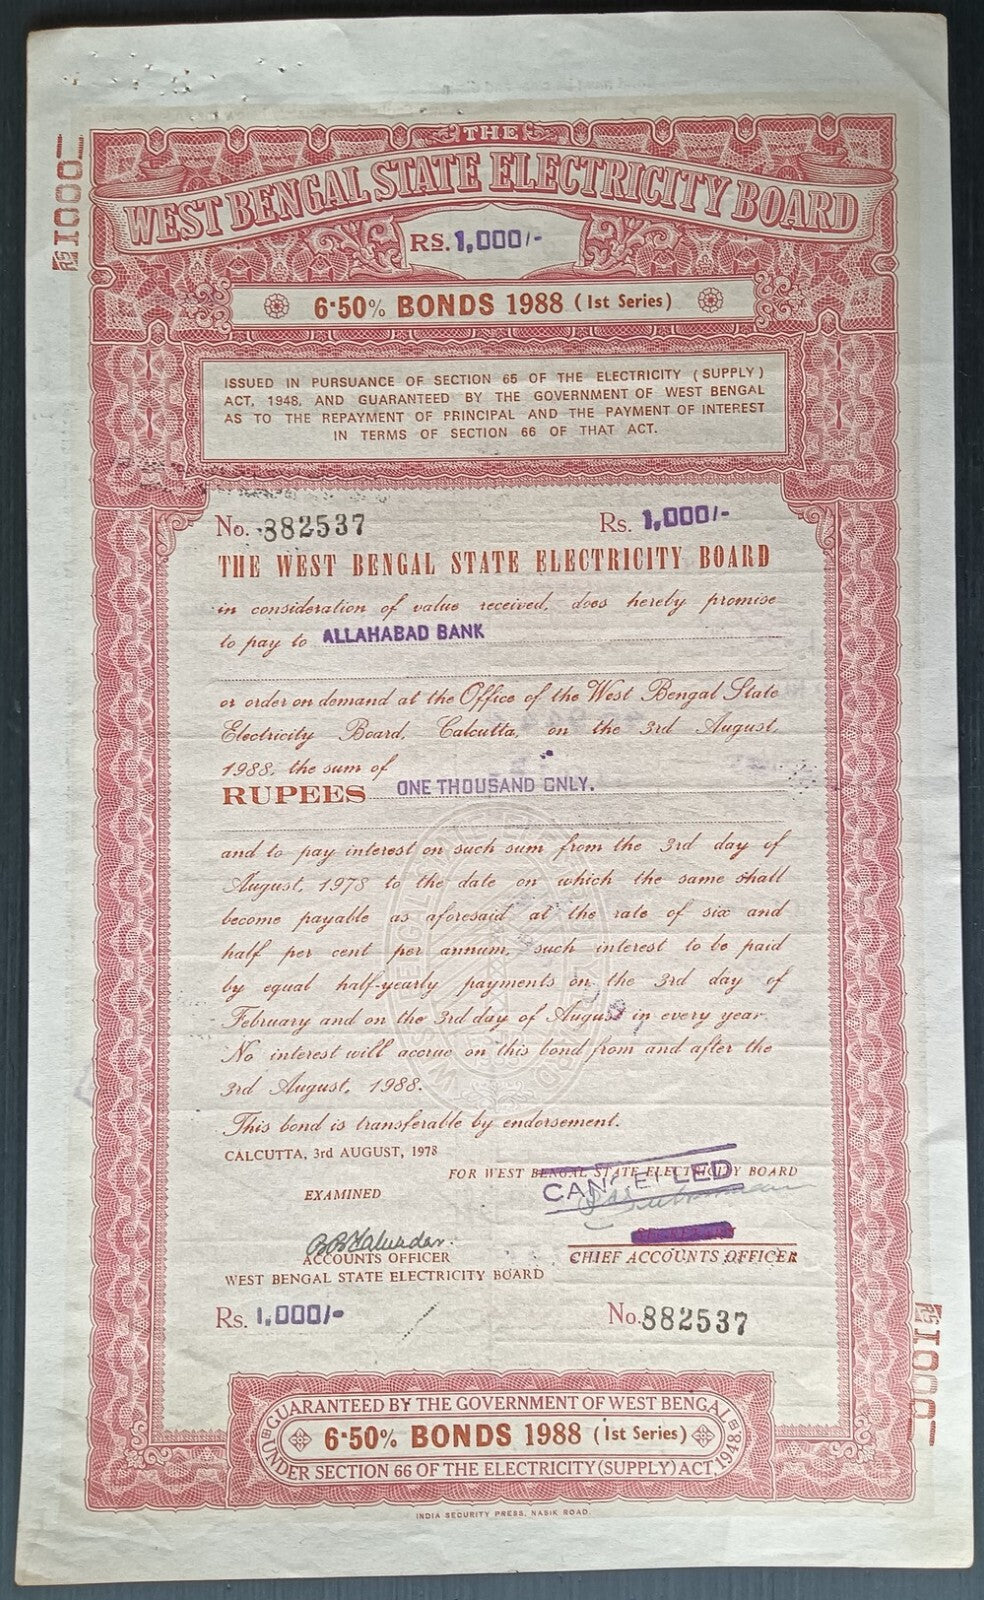 THE
WEST BENGAL STATE ELECTRICITY BOARD
RS. 1,000/-
RS 1000/-
6·50% BONDS 1988 (1st Series)
ISSUED IN PURSUANCE OF SECTION 65 OF THE ELECTRICITY (SUPPLY)
ACT, 1948, AND GUARANTEED BY THE GOVERNMENT OF WEST BENGAL
AS TO THE REPAYMENT OF PRINCIPAL AND THE PAYMENT OF INTEREST
IN TERMS OF SECTION 66 OF THAT ACT.
No. 882537 Rs. 1,000/-
THE WEST BENGAL STATE ELECTRICITY BOARD
in consideration of value received, does hereby promise
to pay to ALLAHABAD BANK
or order on demand at the Office of the West Bengal State
Electricity Board, Calcutta, on the 3rd August,
1988, the sum of
RUPEES ONE THOUSAND ONLY.
and to pay interest on such sum from the 3rd day of
August, 1978 to the date on which the same shall
become payable as aforesaid at the rate of six and
half per cent per annum, such interest to be paid
by equal half-yearly payments on the 3rd day of
February and on the 3rd day of August in every year.
No interest will accrue on this bond from and after the
3rd August, 1988.
This bond is transferable by endorsement.
CALCUTTA, 3rd AUGUST, 1978
FOR WEST BENGAL STATE ELECTRICITY BOARD
CANCELLED
EXAMINED
ACCOUNTS OFFICER
CHIEF ACCOUNTS OFFICER
WEST BENGAL STATE ELECTRICITY BOARD
Rs. 1,000/- No. 882537
RS 1000/-
GUARANTEED BY THE GOVERNMENT OF WEST BENGAL
6·50% BONDS 1988 (1st Series)
UNDER SECTION 66 OF THE ELECTRICITY (SUPPLY) ACT, 1948.
INDIA SECURITY PRESS, NASIK ROAD.